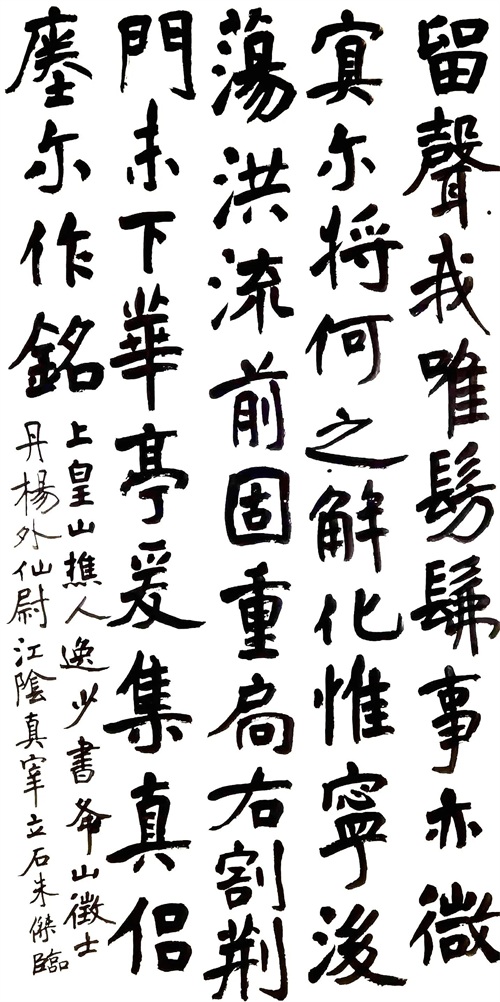 留聲我唯髣髴事亦微
冥尔将何之解化惟寧後
蕩洪流前固重扃右割荆
門未下華亭爰集真侶
瘞尔作銘
上皇山樵人逸少書夅山徵士
丹楊外仙尉江陰真宰立石朱傑臨